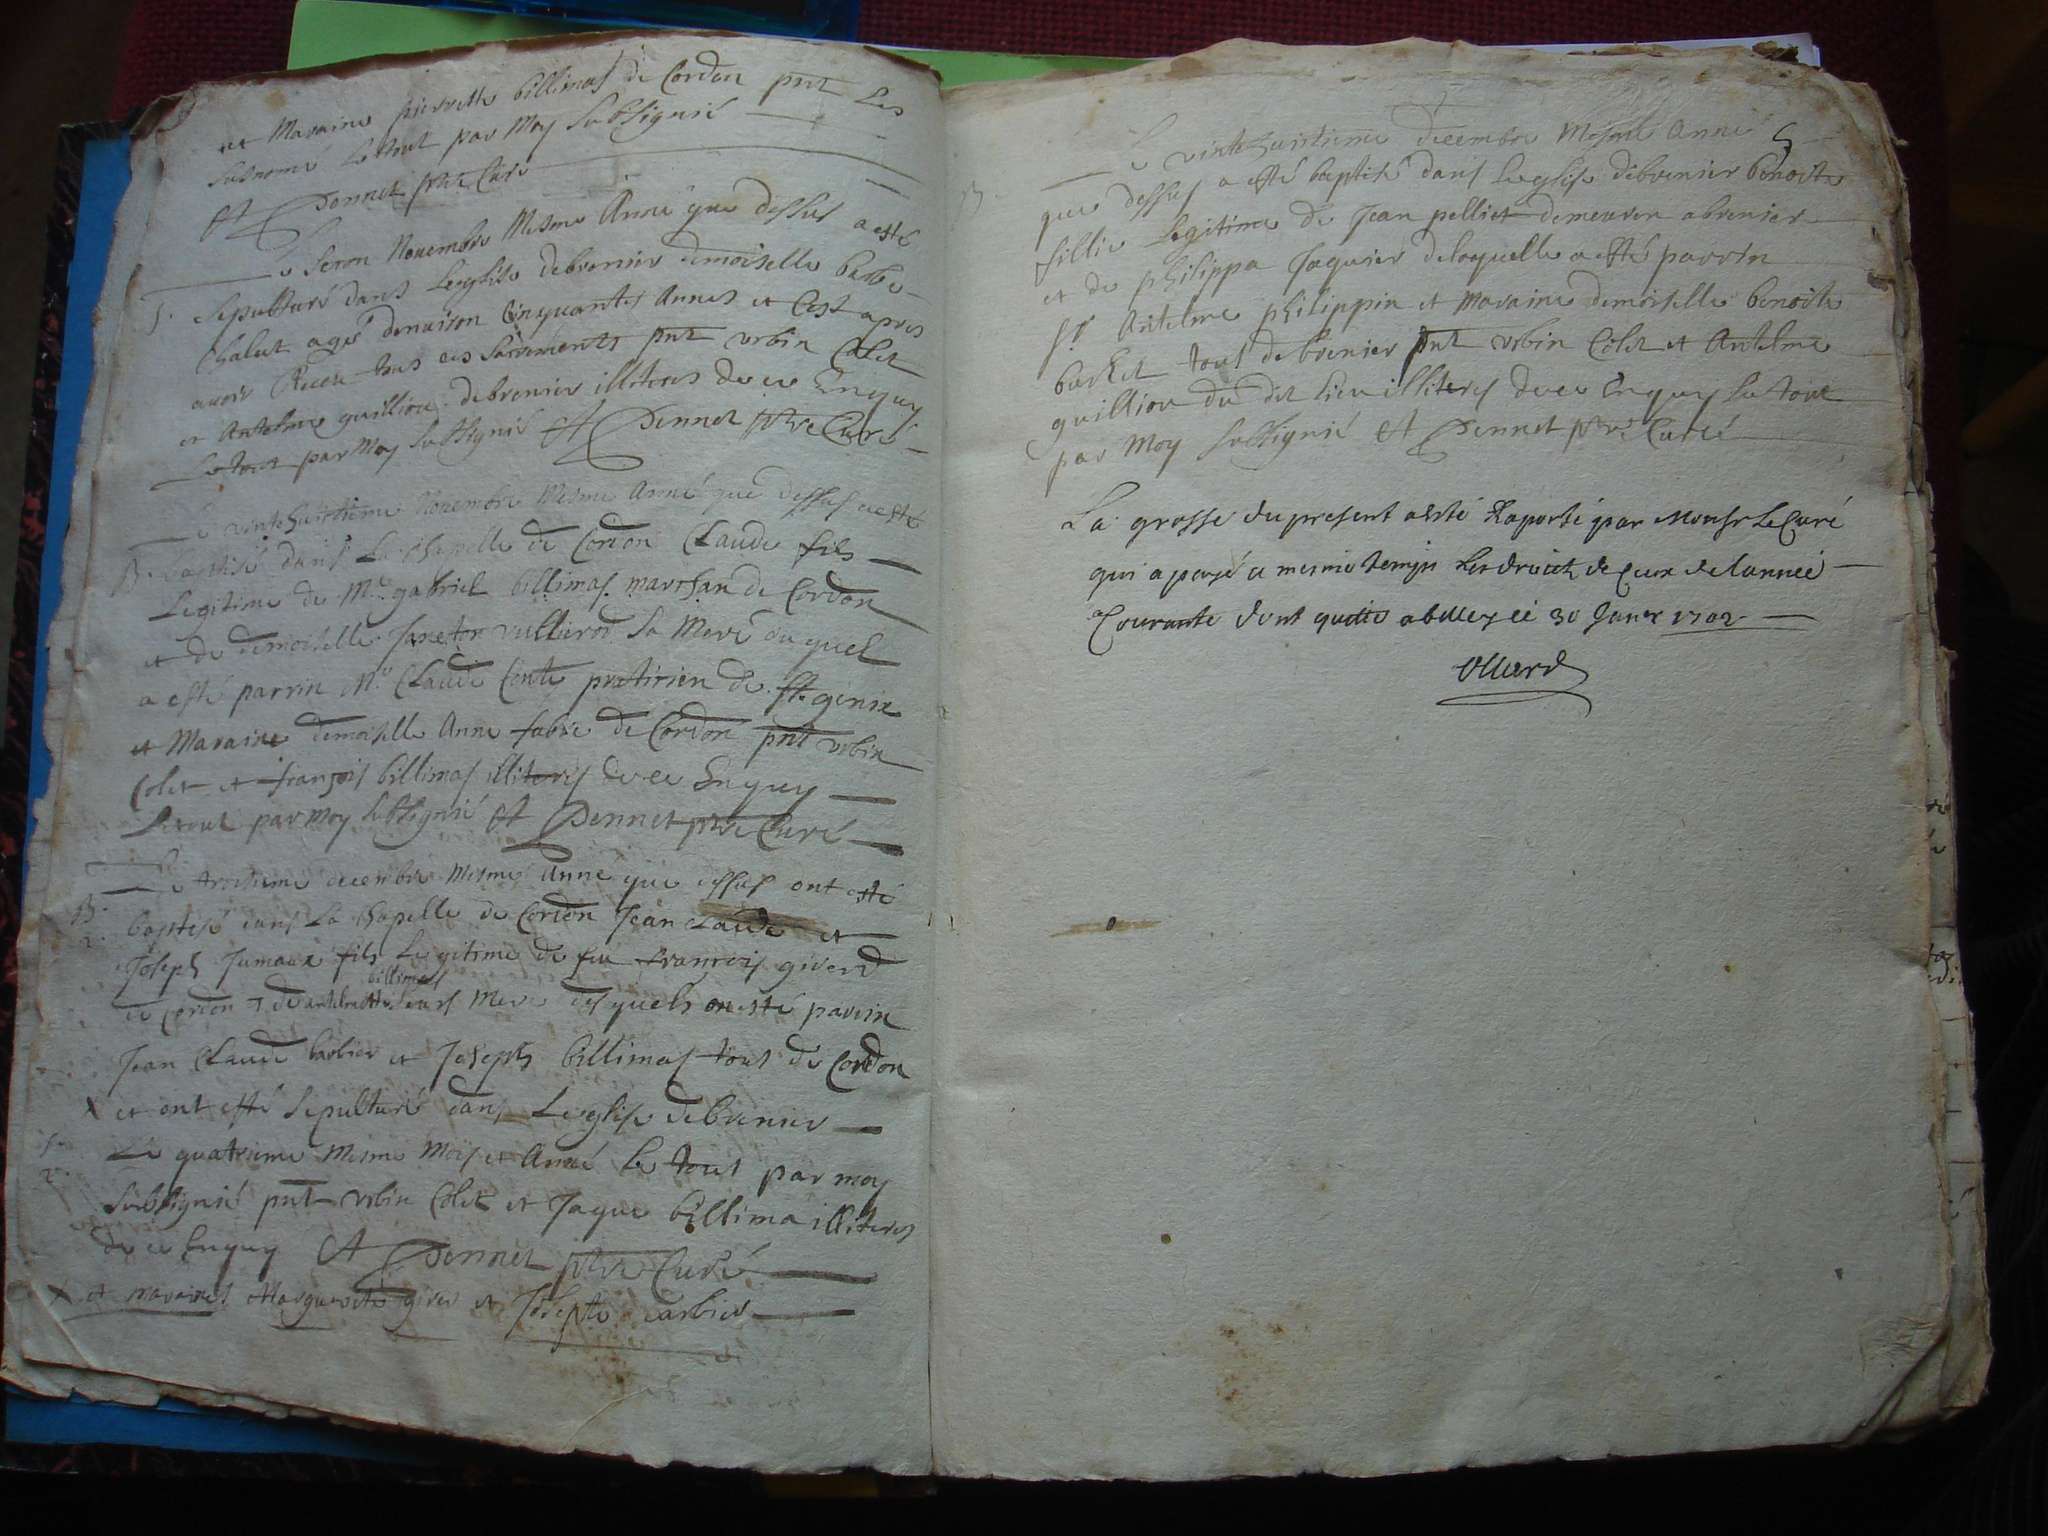 et Maraine pierrette billimas de Cordon pnt Les
susnomé Le tout par Moy soubsigné
Pennet ptre Curé
Le seron Novembre Mesme Anné que dessus a esté
S. sepulturé dans Leglise debrenier demoiselle
Chalut agé denuiron Cinquantes Annes et Cest apres
avoir Receu tous ces sacrements pnt vrbin Colet
et Antelme guilliou debrenier illiteres de ce Enquy
Le tout par Moy soubsigné Et Pennet ptre Curé
Le vintehuitieme Novembre Mesme Anné que dessus a esté
B. baptisé dans La chapelle de Cordon Claude fils
Legitime de Mre gabriel billimas marchan de Cordon
et de demoiselle Janeton vullierod sa Mere duquel
a esté parrin Mre Claude Conte pratirien de St genix
et Maraine demoiselle Anne fabre de Cordon pnt vrbin
Colet et françois billimas illiteres de ce Enquy
Le tout par Moy soubsigné Et Pennet ptre Curé
Le troisieme decembre Mesme Anné que dessus ont esté
B. 2. baptisé dans La chapelle de Cordon Jean Claude et
Joseph Jumaux fils Legitime de feu francois giverd
billimas
de Cordon et de leurs Mere desquels on esté parrin
Jean Claude barbier et Joseph billimas tous de Cordon
X et ont esté sepulturé dans Leglise debrenier
S. 2. Le quatrieme Mesme Mois et Anné le tout par moy
soubsigné pnt vrbin Colet et Jaque billima illiteres
de ce Enquy Et Pennet ptre Curé
X et maraines Marguerite et Josepte barbier
5
Le vintehuitieme decembre Mesme Anné
B. que dessus a esté baptisé dans Leglise debrenier benoite
fillie Legitime de Jean pelliet demeuren abrenier
et de philippa Jaquier delaquelle a esté parrin
Sr Antelme philippin et Maraine demoiselle benoite
tous debrenier pnt vrbin Colet et Antelme
guilliou du dit lieu illiteres de ce Enquy Le tout
par Moy soubsigné Et Pennet ptre Curé
La grosse du present a esté Raporté par Monsr Le Curé
qui a payé a mesme temps Les droict de Ceux de lannée
Courante dont quitte abelley ce 30 Janer 1702